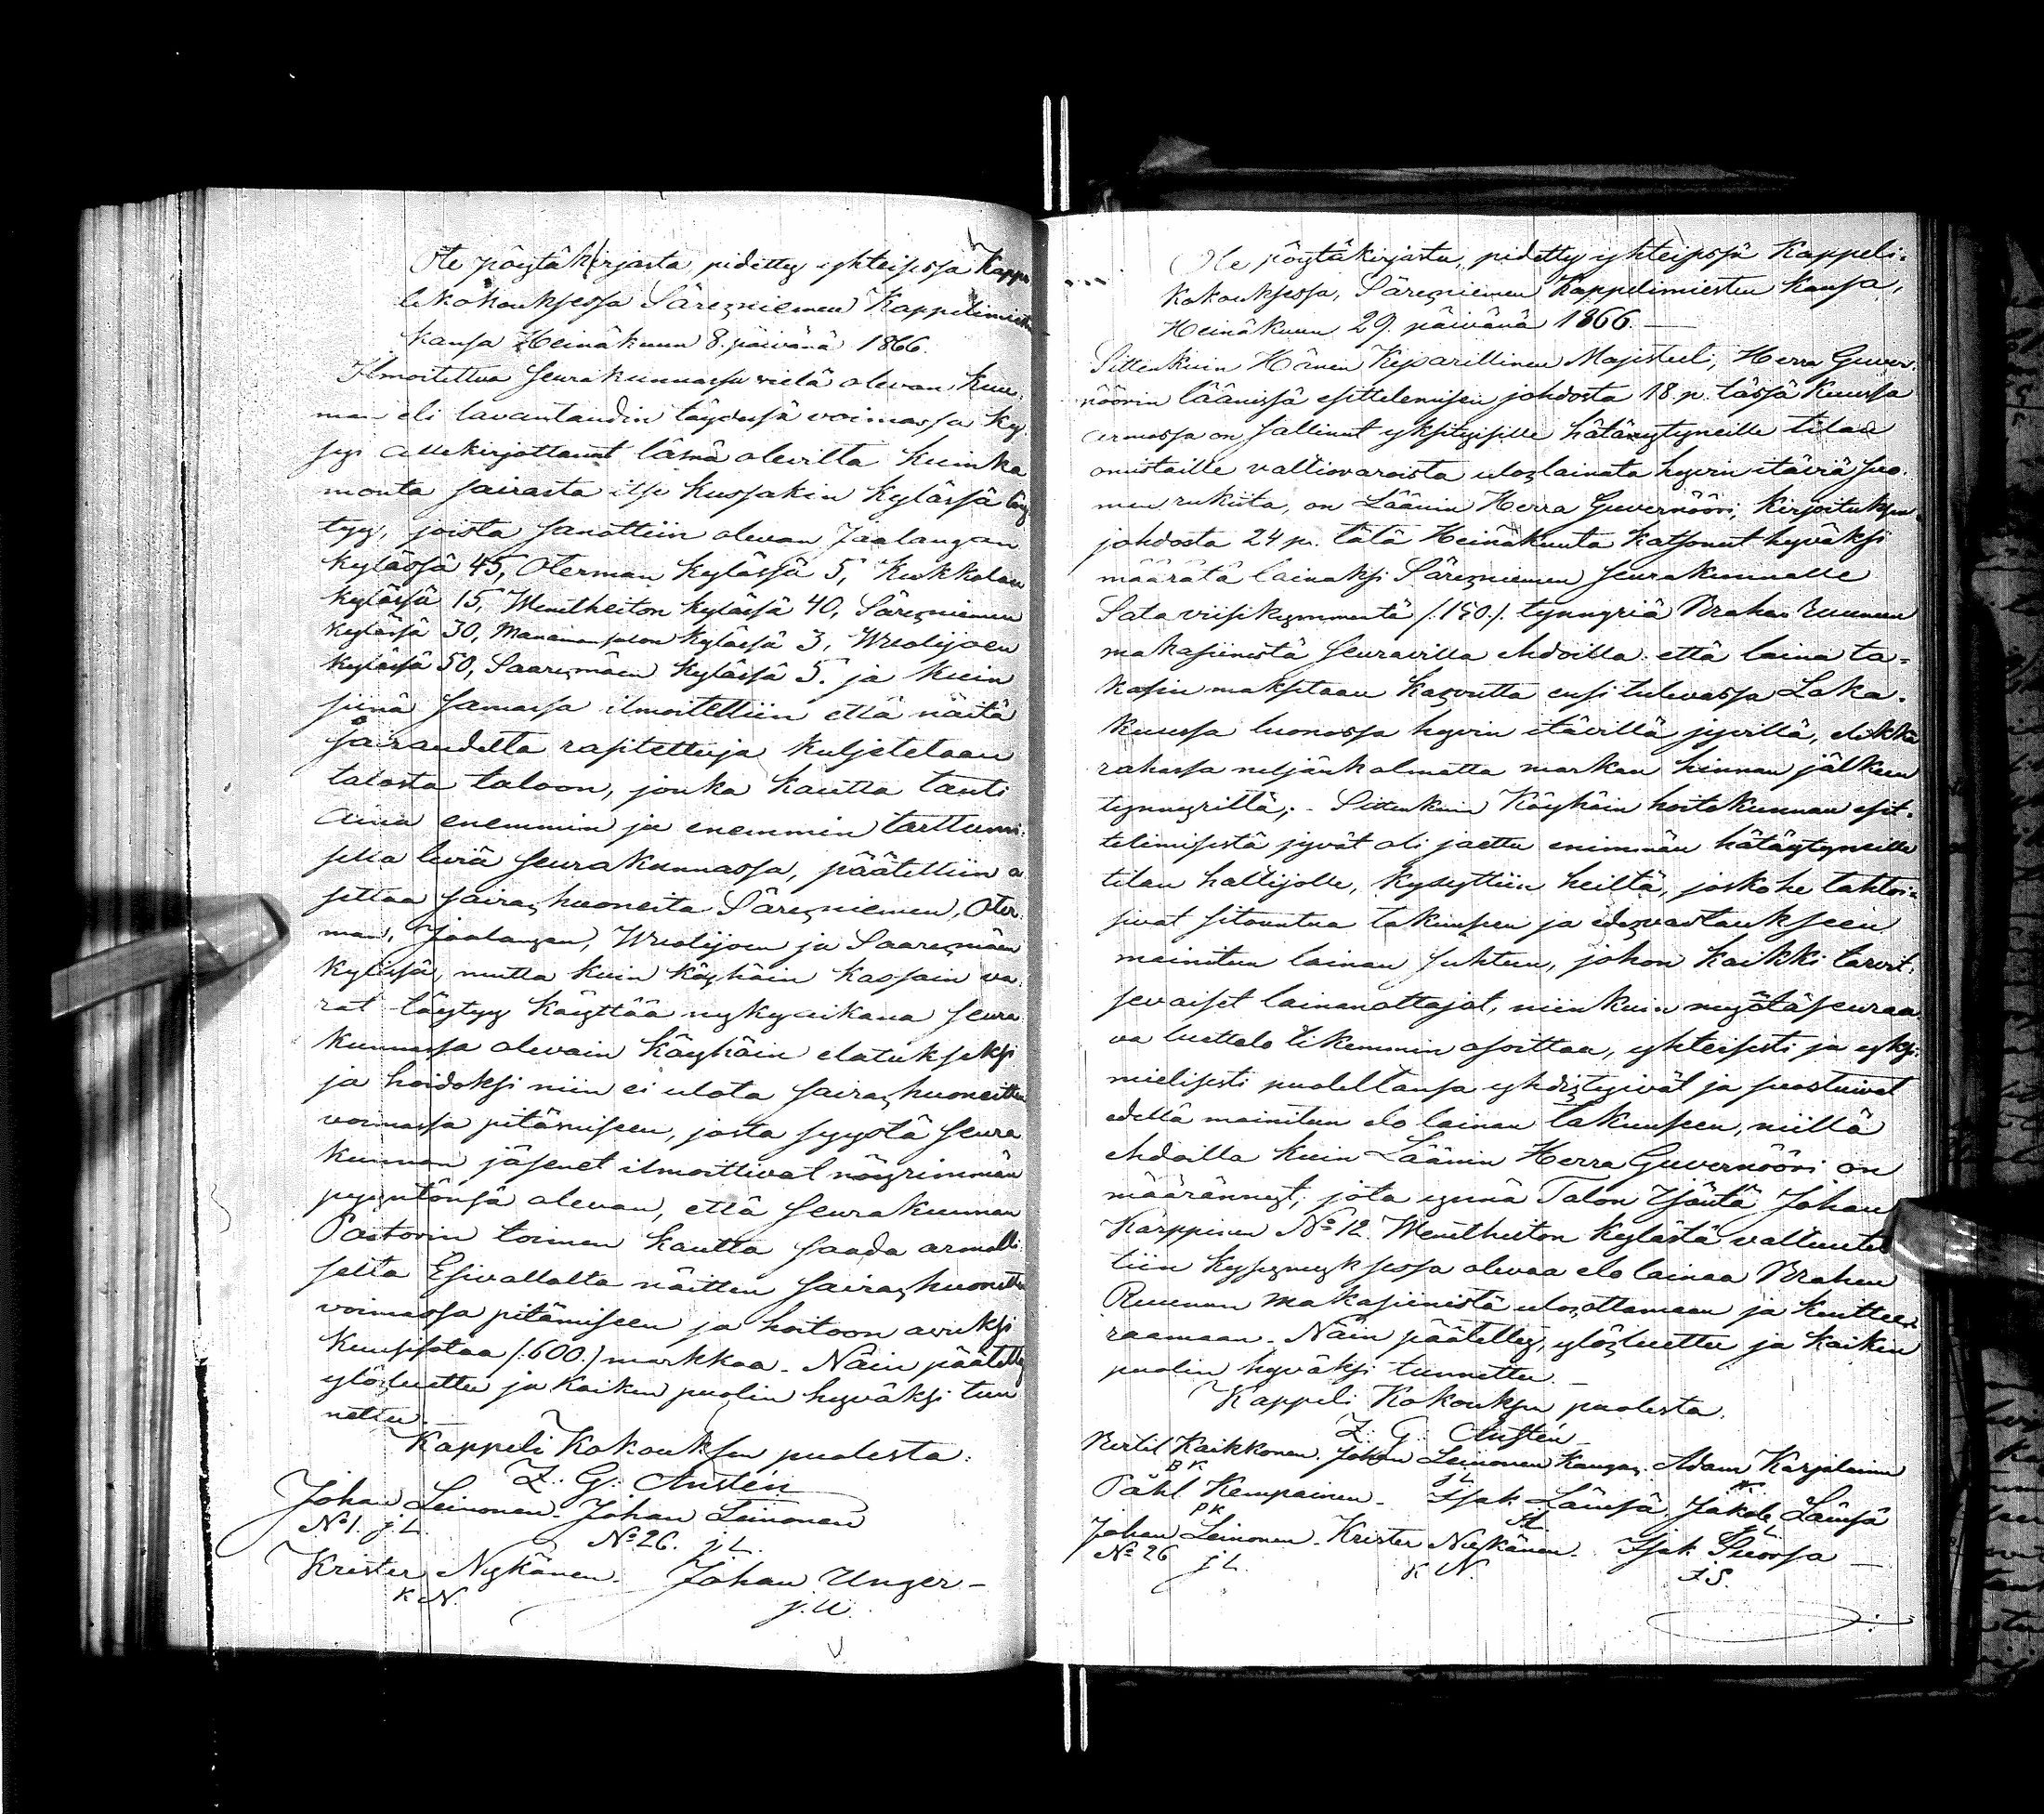 Ote pöytäkirjasta, pidetty yhteisessa Kappe
likokouksessa Säresniemen Kappelimiesten
kansa Heinäkuun 8. päivänä 1866.
Ilmoitettua seurakunnassa vielä olevan kuu-
man eli lavantaudin täydessä voimassa ky-
syi allekirjottanut läsnä olevilta kuinka
monta sairasta itse kussakin kylässä löy
tyy, joista sanottiin olevan Jaalangan
kylässä 45, Oterman kylässä 5, Kukkolan
kylässä 15, Wenetheiton kylässä 40, Säresniemen
kylässä 30, Manamansalon kylässä 3, Wuolijoen
kylässä 50, Saaresmäen kylässä 5. ja kuin
siinä samassa ilmoitettiin että näitä
sairaudelta rasitettuja kuljetetaan
talosta taloon, jonka kautta tauti
aina enemmin ja enemmin tarttumi-
sella leviä seurakunnassa, päätettiin a
settaa sairashuoneita Säresniemen, Oter-
man, Jaalangan, Wuolijoen ja Saaresmäen
kylissä, mutta kuin köyhäin kassain va-
rat täytyy käyttää nykyaikana seura
kunnassa olevain köyhäin elatukseksi
ja hoidoksi niin ei ulota sairashuoneitten
voimassa pitämiseen, josta syystä seura
kunnan jäsenet ilmoittivat nöyrimmän
pyyntönsä olevan, että seurakunnan
Pastorin toimen kautta saada armolli
selta Esivallalta näitten sairashuonetten
voimassa pitämiseen ja hoitoon avuksi
kuusisataa /:600:/ markkaa. Näin päätetty
ylösluettu ja kaiken puolin hyväksi tun
nettu.
Kappeli Kokouksen puolesta:
Z: G: Austén
Johan Leinonen. Johan Leinonen
No 1. j. L. No 26. j. L.
Krister Nykänen. Johan Unger-
K N. j. U.
Ote pöytäkirjasta, pidetty yhteisessä Kappeli-
kokouksessa, Säresniemen Kappelimiesten kansa,
Heinäkuun 29. päivänä 1866.
Sittenkuin Hänen Keisarillinen Majesteeti, Herra Guver-
nöörin läänissä esittelemisen johdosta 18 p. tässä kuussa
armossa on sallinut yksityisille hätäytyneille tilan
omistaille valtiovaroista uloslainata hyvin itäviä sie-
men rukiita, on Läänin Herra Guvernööri, kirjoituksen
johdosta 24 p. tätä Heinäkuuta katsonut hyväksi
määrätä lainaksi Säresniemen seurakunnalle
Sata viisikymmentä /:150:/ tynnyriä Brahan Ruunun
makasiinistä seuraavilla ehdoilla: että laina ta-
kasin maksetaan kasvutta ensi tulevassa Loka-
kuussa luonossa hyvin itävillä jyvillä, elikkä
rahassa neljänkolmatta markan hinnan jälkeen
tynnyriltä; - Sittenkuin Köyhäin hoitokunnan esit-
telimisestä jyvät oli jaettu enimmän hätäytyneille
tilan haltijolle, kysyttiin heiltä, joskohe tahtoi-
sivat sitountua takuuseen ja edesvastaukseen
mainitun lainan suhteen, johon kaikki tarvit-
sevaiset lainanottajat, niinkuin myötäseuraa
va luettelo likemmin osoittaa, yhteisesti ja yksi-
mielisesti puoleltansa yhdistyivät ja suostuivat
edellä mainitun elo lainan takuuseen, niillä
ehdoilla kuin Läänin Herra Guvernööri on
määrännyt; jota ynnä Talon Isäntä Johan
Karppinen No 12 Wenetheiton kylästä valtuutet
tiin kysymyksessa olevaa elo lainaa Brahen
Ruunun makasiinistä ulosottamaan ja kvittee-
raamaan. Näin päätetty, ylösluettu ja kaiken
puolin hyväksi tunnettu.
Kappeli Kokouksen puolesta.
Z: G: Austén
Bertil Kaikkonen. Johan Leinonen Kangas. Adam Karjalainen
B K j L
Påhl Kempainen. Isak Lämsä. Jakob Lämsä
P K I L j L
Johan Leinonen. Krister Nykänen. Isak Suorsa
No 26 j L. K N. I. S.